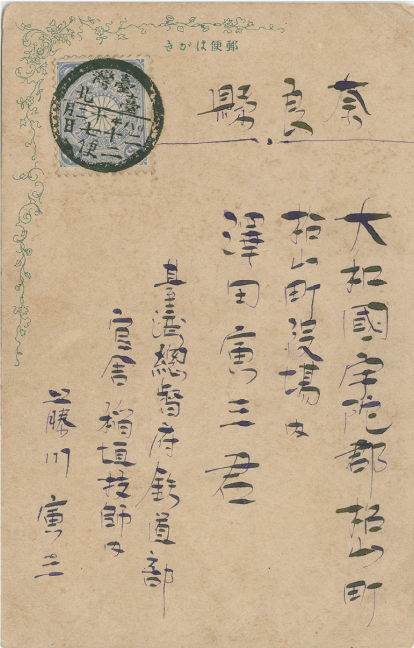 郵便はがき
奈良縣
大和國宇陀郡松山町
松山町役場内
澤田寅三君
臺湾總督府鉄道部
官舎 稲垣技師内
藤川寅三
臺灣
臺北